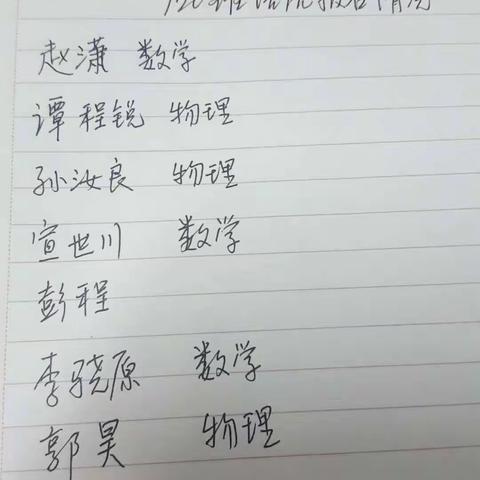 班 报名情况
赵潇 数学
谭程锐 物理
孙汝良 物理
宣世川 数学
彭程
李骁原 数学
郭昊 物理